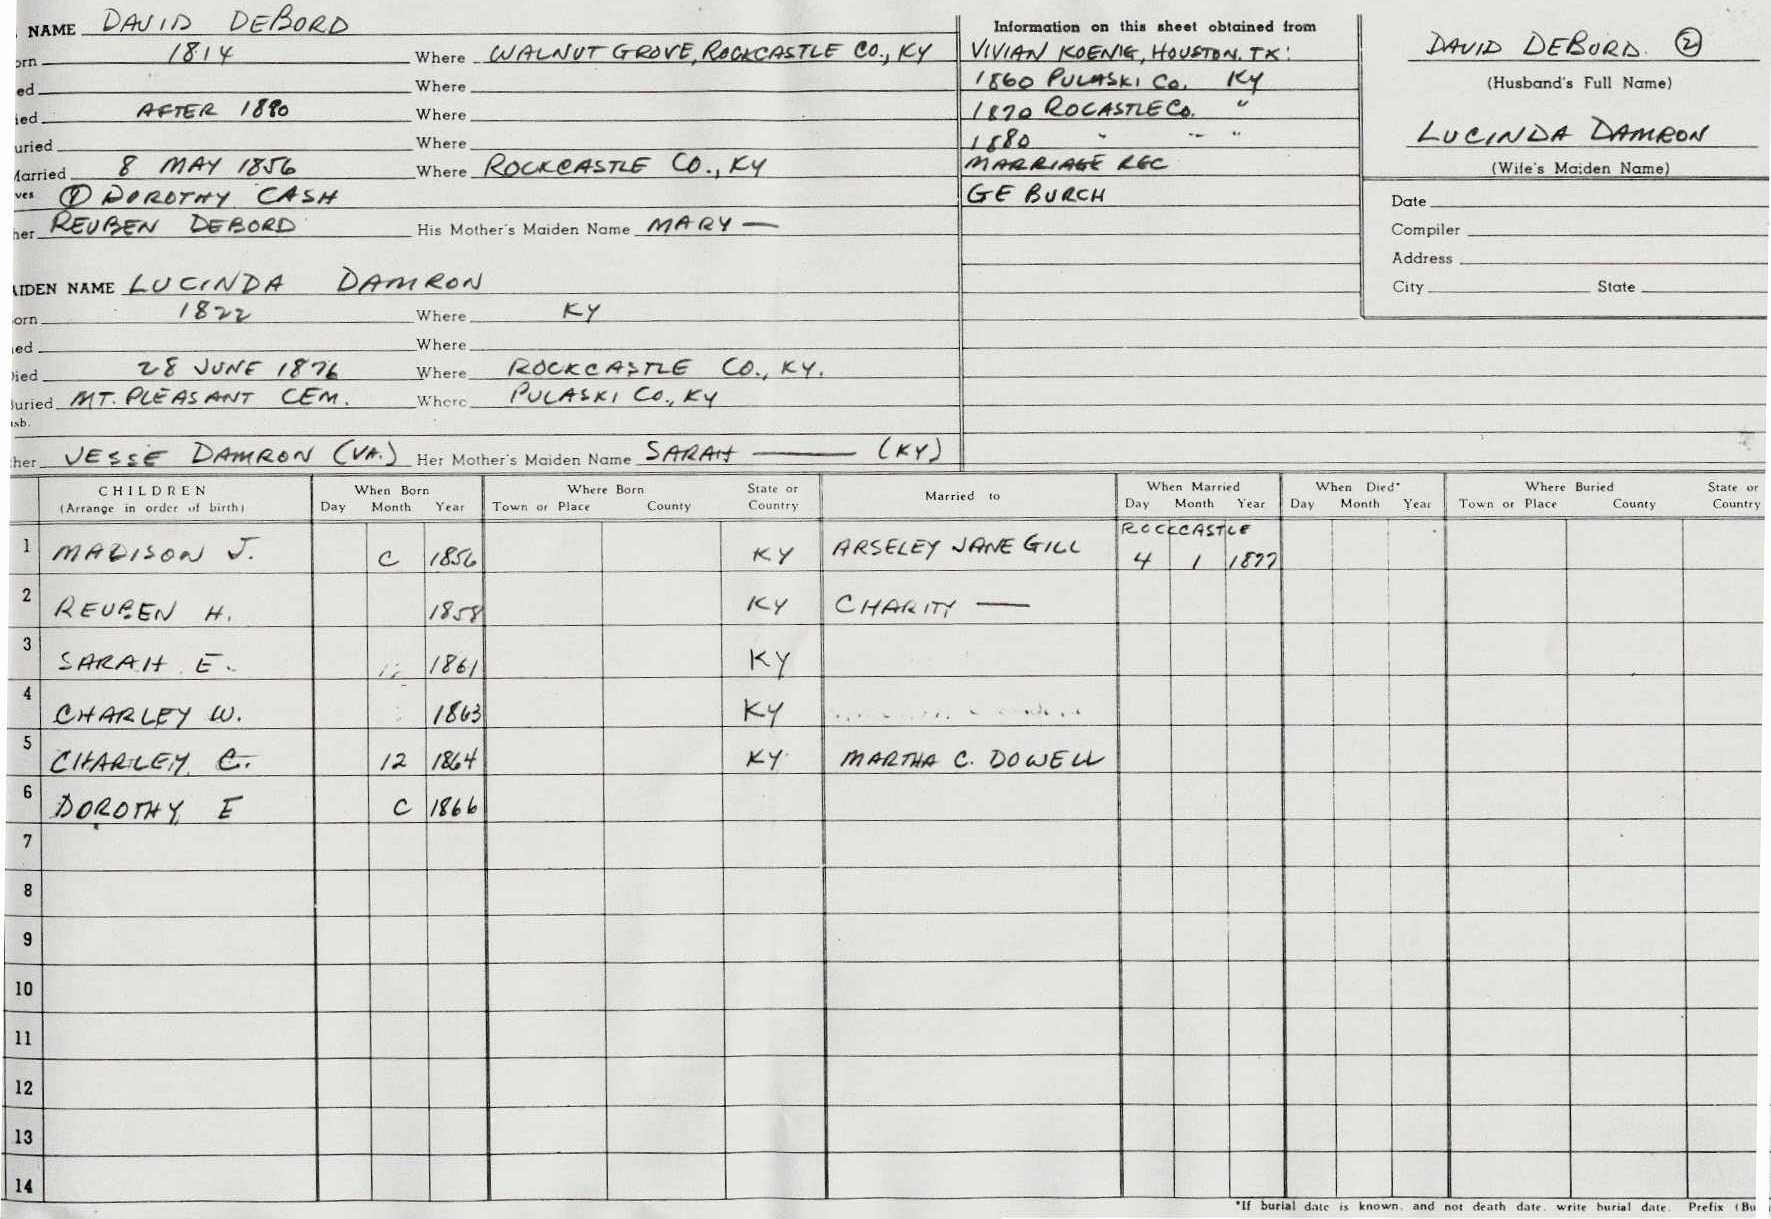 NAME DAVID DEBORD
orn 1814 Where WALNUT GROVE, ROCKCASTLE CO., KY
ed Where
ied AFTER 1880 Where
uried Where
Married 8 MAY 1856 Where ROCKCASTLE CO., KY
ves ① DOROTHY CASH
her REUBEN DEBORD His Mother's Maiden Name MARY —
AIDEN NAME LUCINDA DAMRON
orn 1822 Where KY
ed Where
Died 28 JUNE 1876 Where ROCKCASTLE CO., KY.
Buried MT. PLEASANT CEM. Where PULASKI CO., KY
sb.
her JESSE DAMRON (VA.) Her Mother's Maiden Name SARAH — (KY)
Information on this sheet obtained from
VIVIAN KOENIG, HOUSTON. TX:
1860 PULASKI CO. KY
1870 ROCASTLE CO. "
1880 " " "
MARRIAGE REC
GE BURCH
DAVID DEBORD. ②
(Husband's Full Name)
LUCINDA DAMRON
(Wife's Maiden Name)
Date
Compiler
Address
City State
CHILDREN When Born Where Born State or Married to When Married When Died* Where Buried State or
(Arrange in order of birth) Day Month Year Town or Place County Country Day Month Year Day Month Year Town or Place County Country
ROCKCASTLE
1 MADISON J. C 1856 KY ARSELEY JANE GILL 4 1 1877
2 REUBEN H. 1858 KY CHARITY —
3 SARAH E. 1861 KY
4 CHARLEY W. 1863 KY
5 CHARLEY C. 12 1864 KY MARTHA C. DOWELL
6 DOROTHY E C 1866
7
8
9
10
11
12
13
14
*If burial date is known, and not death date, write burial date. Prefix (Bu